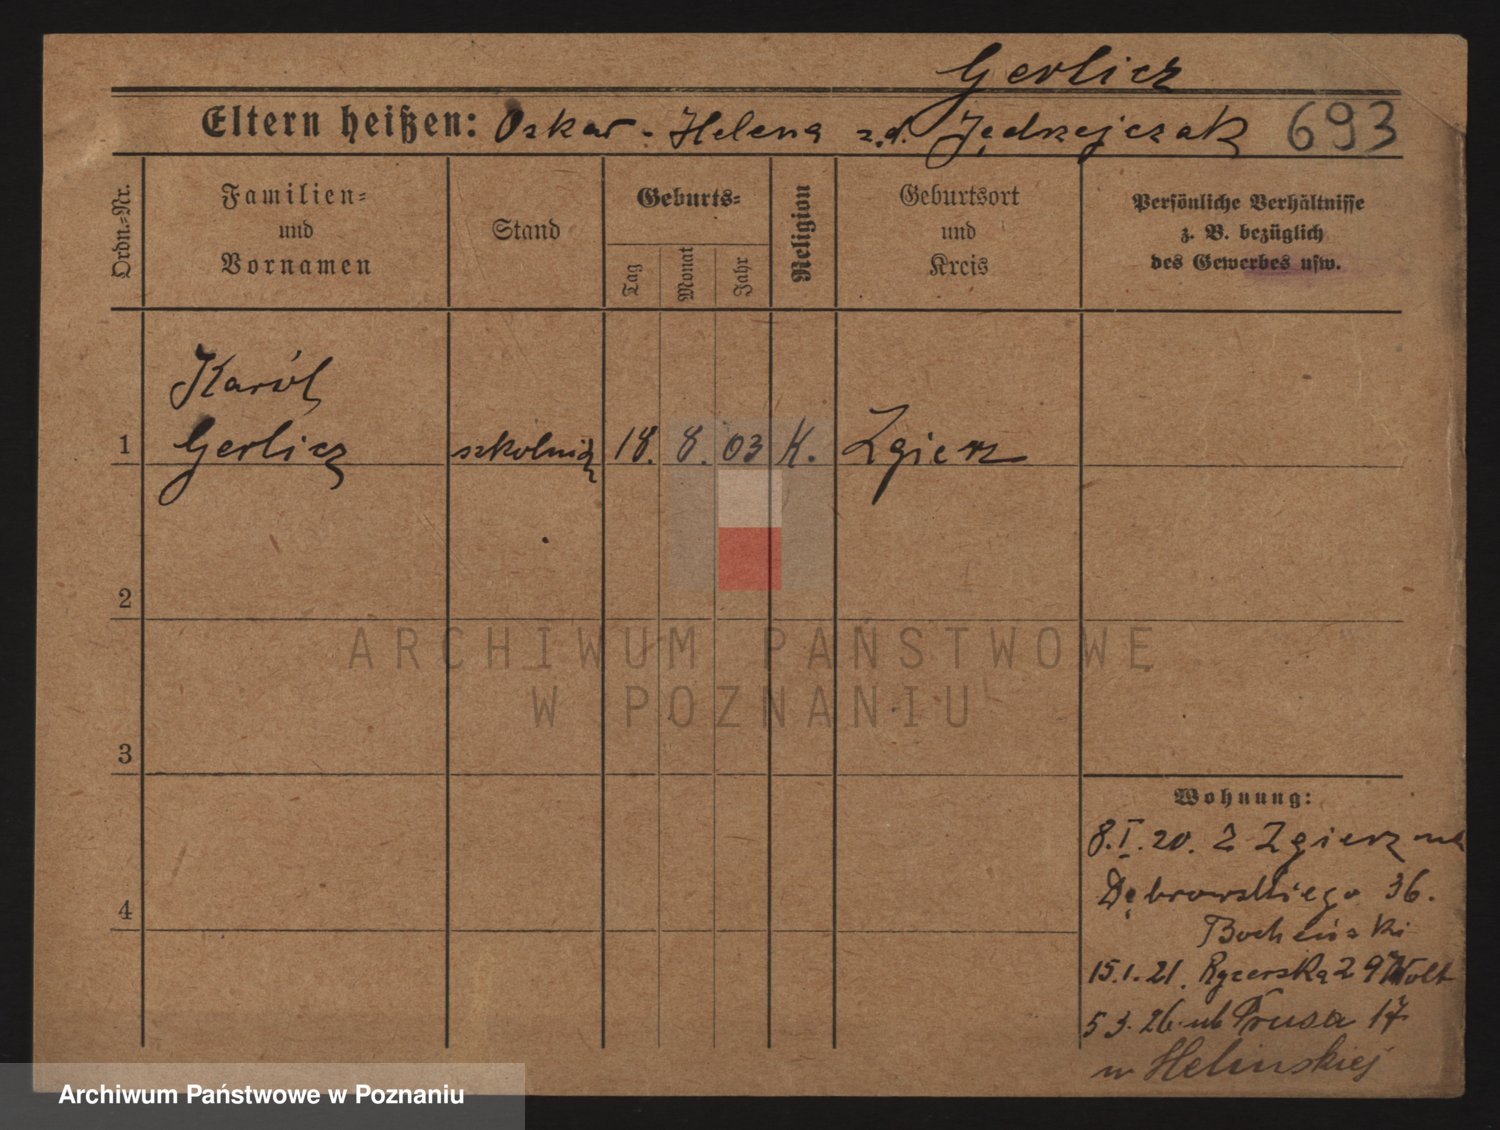 Gerlicz
Eltern heißen: Oskar - Helena z.d. Jędrzejczak 693
Ordn.-Nr.
Familien-
und
Vornamen
Stand
Geburts-
Tag
Monat
Jahr
Religion
Geburtsort
und
Kreis
Persönliche Verhältnisse
z. B. bezüglich
des Gewerbes usw.
Karól
1 Gerlicz 18. 8. 03 K. Zgierz
2
ARCHIWUM PAŃSTWOWE
W POZNANIU
3
Wohnung:
8.I.20. Z Zgierz na
Dąbrowskiego 36.
4
Bocheński
15.1.21. Rycerska 29
5 3. 26. ul Prusa 17
w Helinskiej
Archiwum Państwowe w Poznaniu